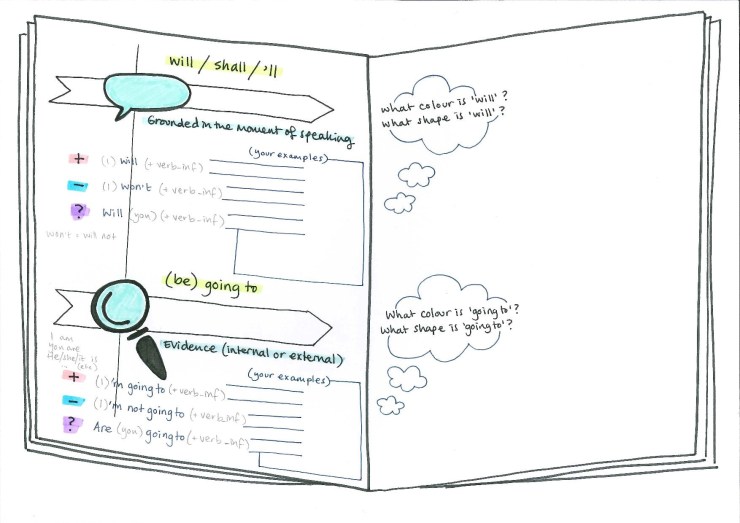 will / shall / 'll
Grounded in the moment of speaking
(your examples)
+ (I) will (+ verb_inf)
− (I) won't (+ verb_inf)
? Will (you) (+ verb_inf)
won't = will not
(be) going to
Evidence (internal or external)
I am
you are
He/she/it is
(your examples)
+ (I)'m going to (+ verb_inf)
− (I)'m not going to (+ verb_inf)
? Are (you) going to (+ verb_inf)
what colour is 'will' ?
what shape is 'will' ?
What colour is 'going to' ?
What shape is 'going to' ?